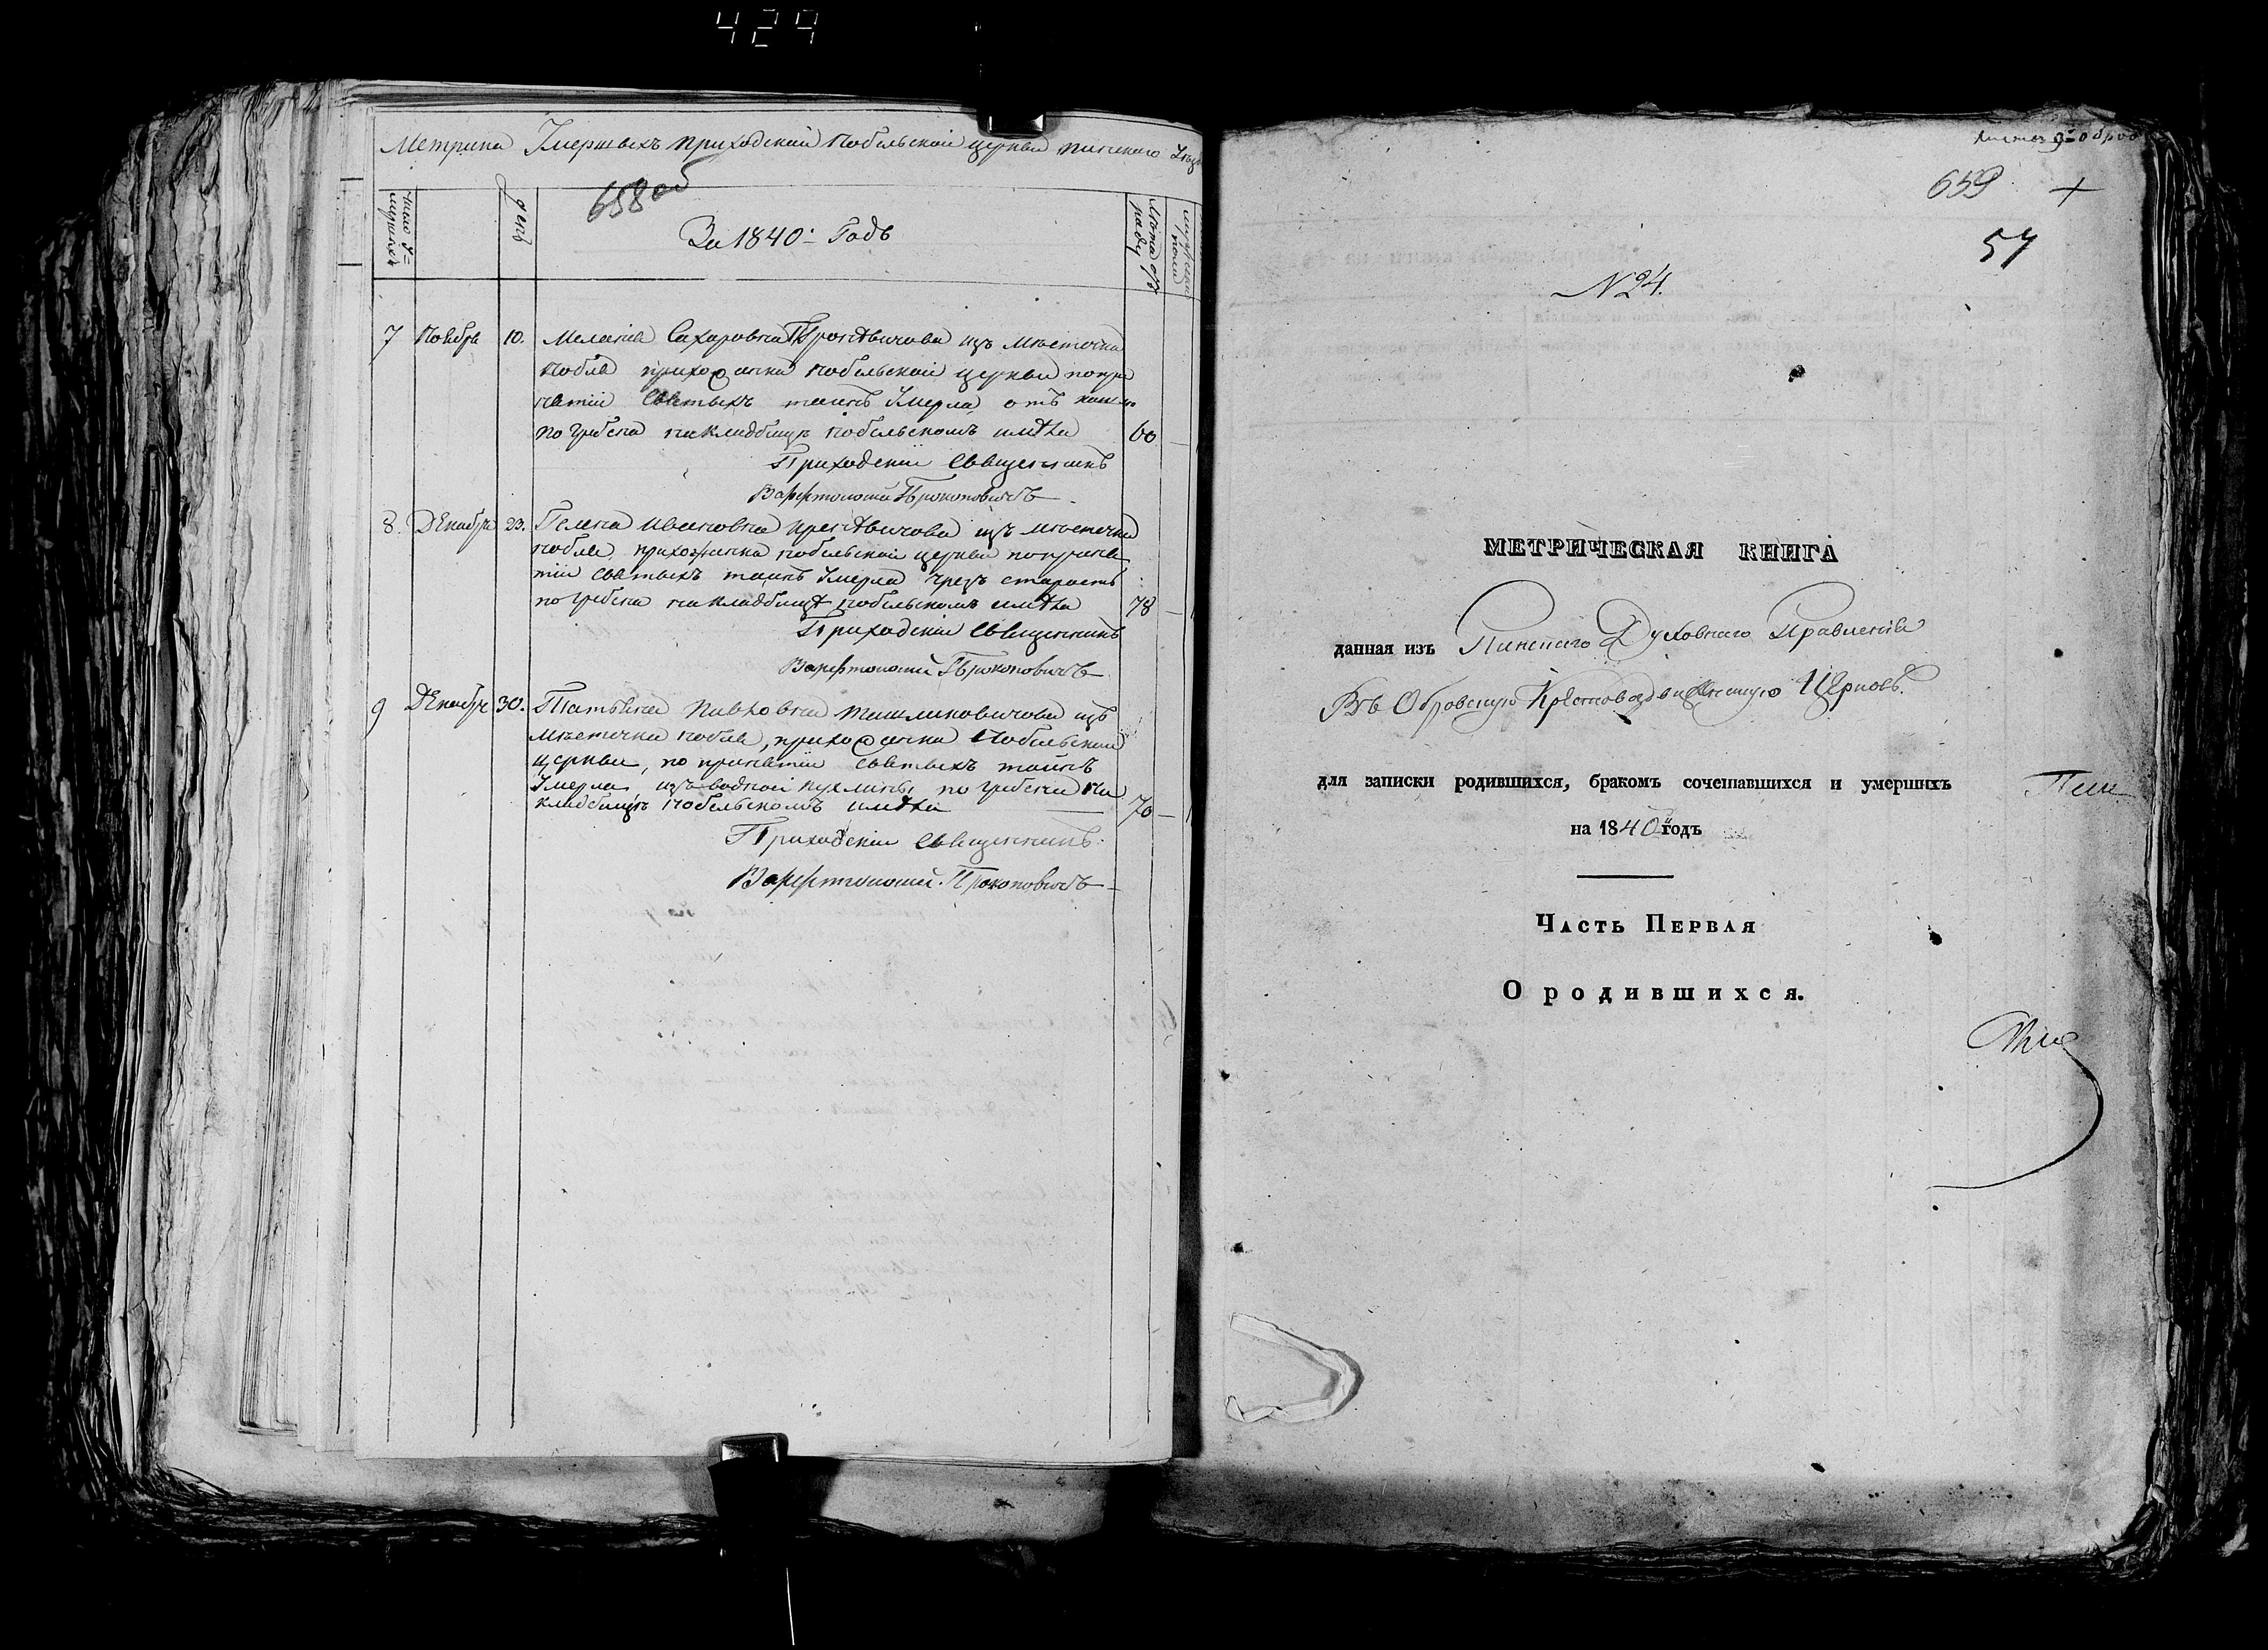 429
Метрика Умершыхъ приходской Нобельской церкви пинского Уезда
658 об
число у=
мершыхъ
день
За 1840: Годъ
лета отъ
роду
мужеска
пола
7 Ноября 10. Меланія Сахаровна из местечка
Нобля прихожанка Нобельской церкви по при
нятіи Святыхъ таинъ Умерла отъ
погребена на кладбищѣ Нобельскомъ имѣла 60
Приходскій Священникъ
Варфоломей Прокоповичъ
8. Декабря 23. Гелена Ивановна изъ местечка
Нобля прихожанка Нобельской церкви по приня
тіи Святыхъ таинъ Умерла чрезъ старость
погребена на кладбищѣ Нобельскомъ имѣла 78
Приходскій Священникъ
Варфоломей Прокоповичъ
9 Декабря 30. Татьяна Павловна изъ
местечка Нобля, прихожанка Нобельской
церкви, по принятіи Святыхъ таинъ
Умерла изъ водной пухлины погребена на
кладбищѣ Нобельскомъ имѣла 70
Приходскій Священникъ
Варфоломей Прокоповичъ
659
57
N 24.
МЕТРИЧЕСКАЯ КНИГА
данная изъ Пинскаго Духовнаго Правленія
Въ Обровскую Крестовоздвиженскую Церковь.
для записки родившихся, бракомъ сочетавшихся и умершихъ
на 1840й годъ
Часть Первая
О родившихся.